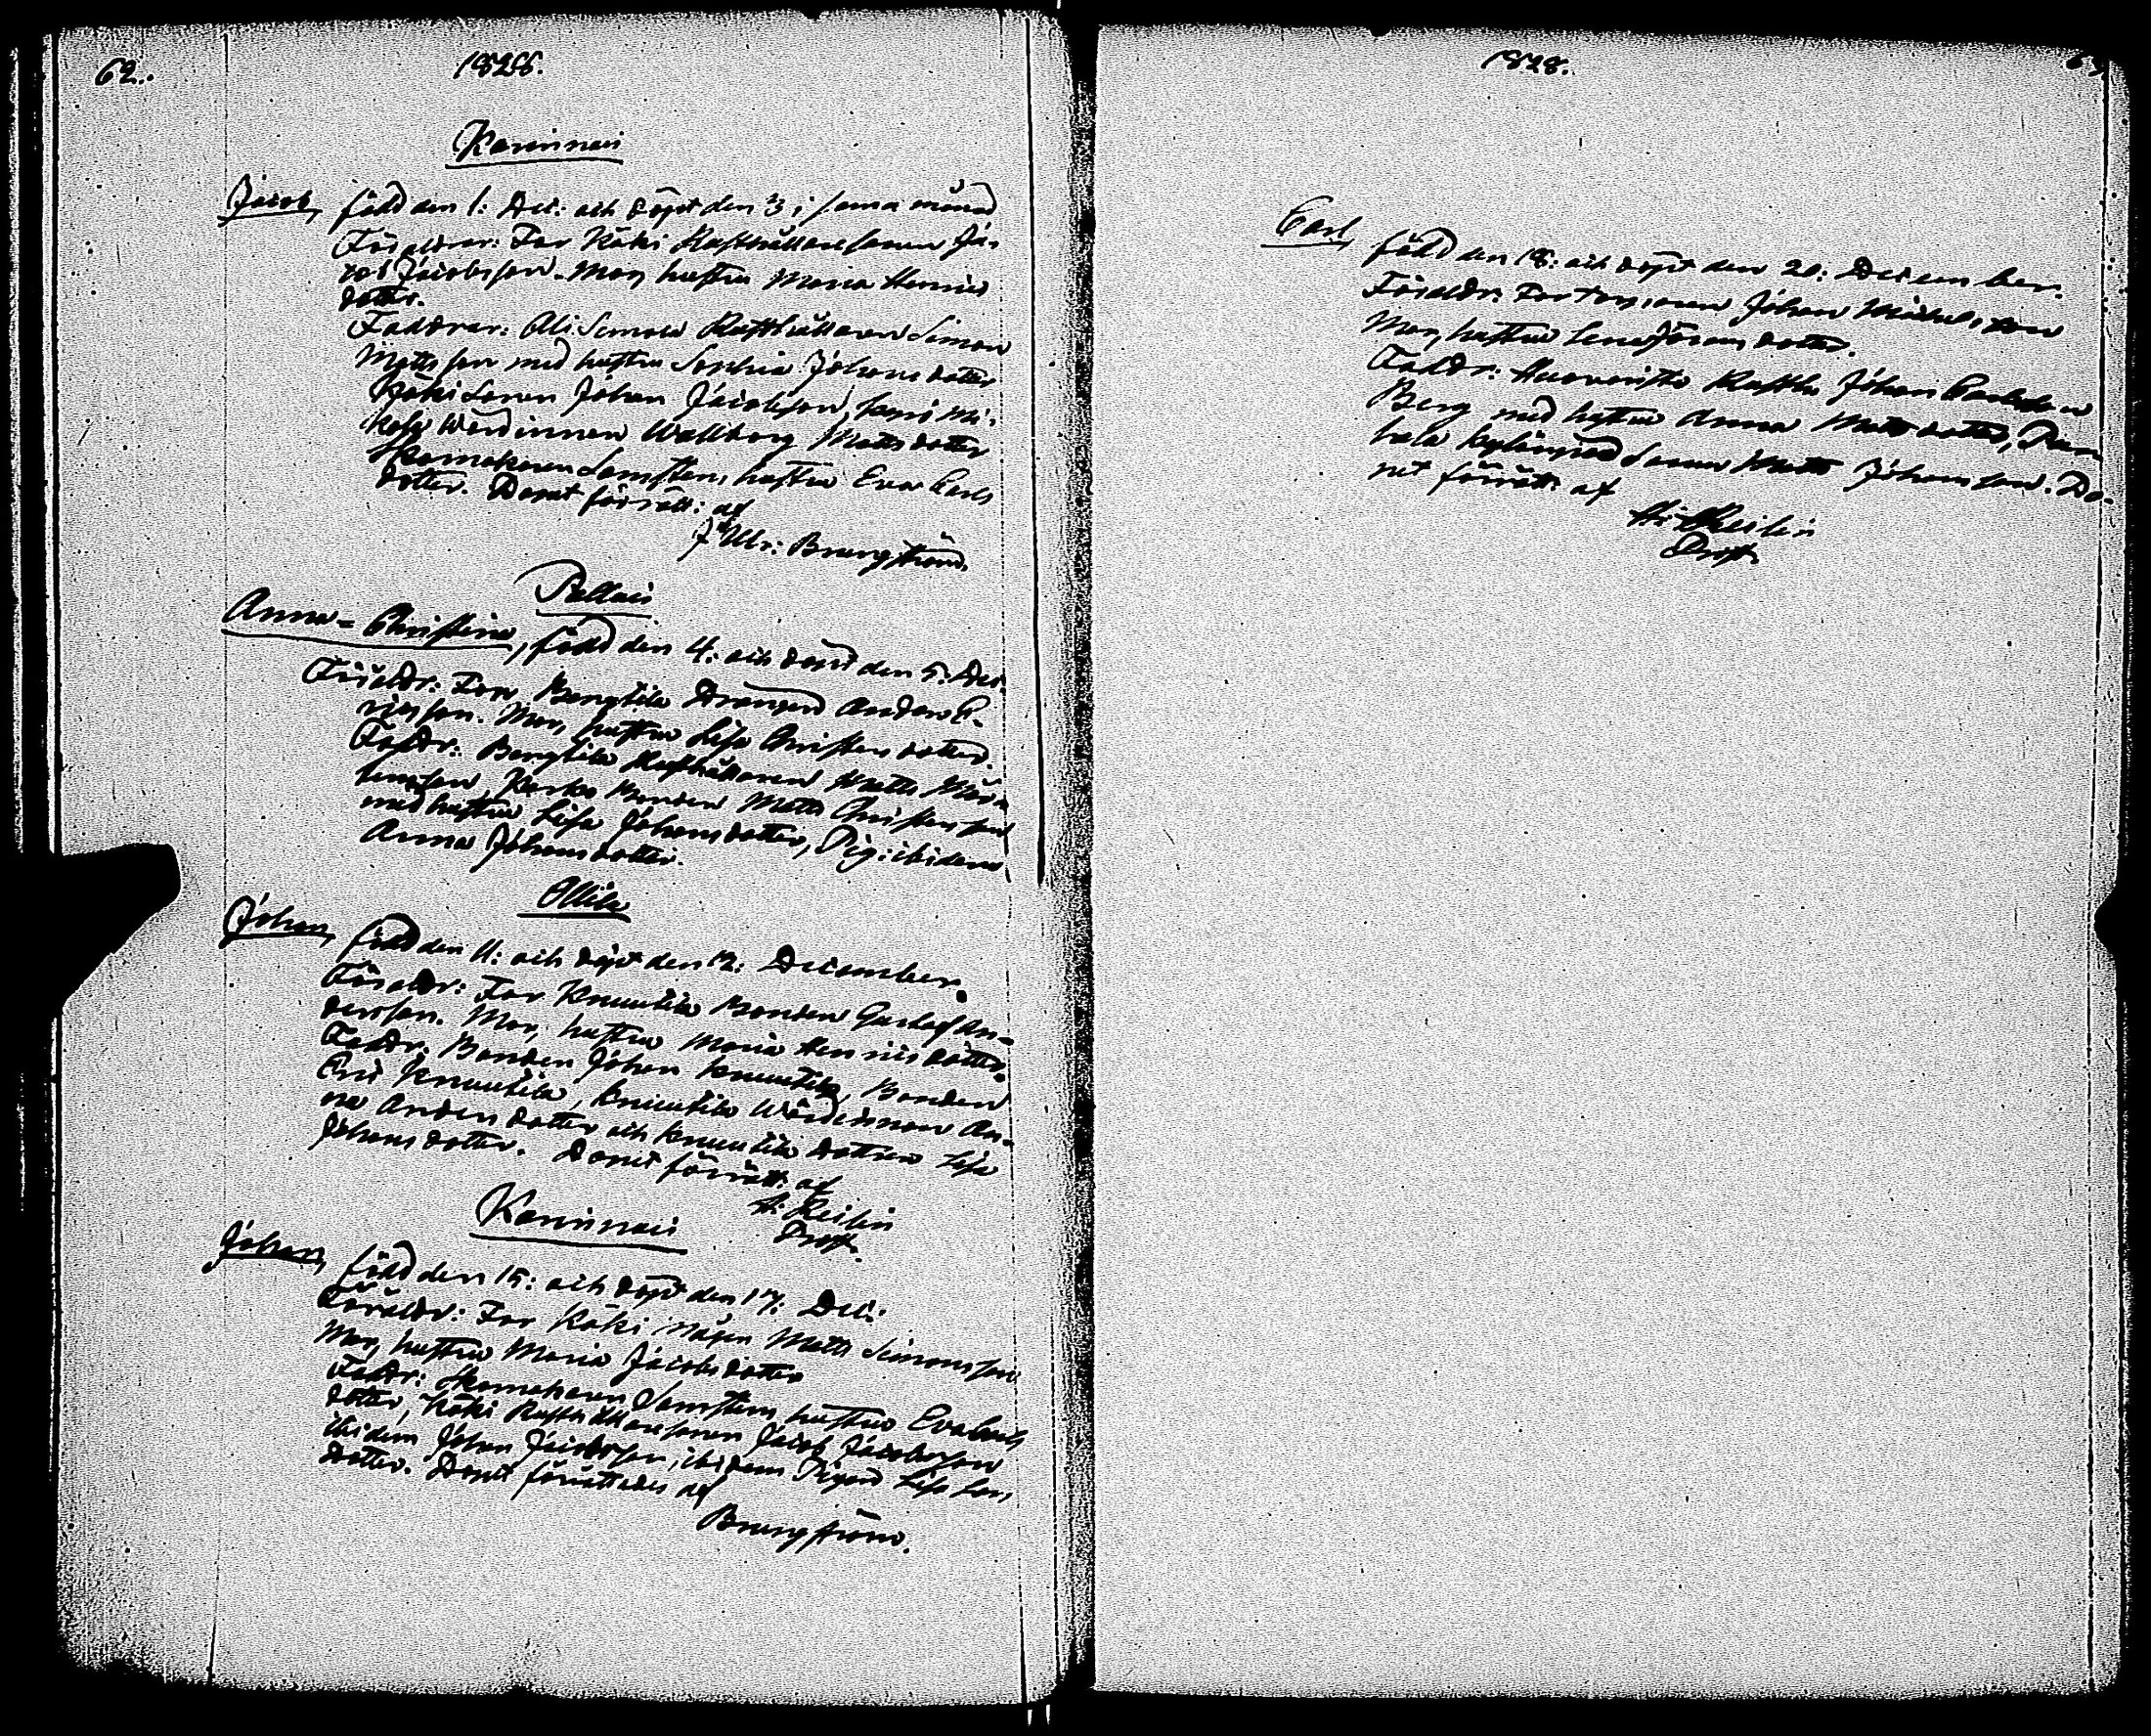 62.
1828.
Karinnais
Jacob, född den 1: Dec: och döpt den 3 i sama månad
Föräldrar: Far Käki Rusthållaresonen Ja-
cob Jacobsson. Mor, hustru Maria Henrics
dotter.
Faddrar: Ali Simola Rusthållaren Simon
Mattsson med hustru Sophia Johans dotter
Käki Sonen Johan Jacobsson,
kola Wärdinnan Wallborg Matts dotter
Skomakaren hustru Eva Carls
dotter. Dopet förrätt: af
J Ulr: Brungström.
Pellais
Anna-Christina, född den 4: och döpt den 5: Dec.
Föräldr: Far, Bengtila Drängen Anders E-
ricsson. Mor, hustru Lisa Christers dotter.
Faddr: Bengtila Rusthållaren Matts
Bonden Matts Christersson
med hustru Lisa Johansdotter, Pig: ibidem
Anna Johansdotter.
Ollila
Johan, född den 11: och döpt den 12: December.
Föräldr: Far Knuutila Bonden Gustaf An-
dersson. Mor, hustru Maria Henricsdotter.
Faddr. Bonden Johan Knuutila, Bonden
Eric Knuutila, Knuutila Wärdinnan An-
na Anders dotter och Knuutila Dottren Lisa
Johans dotter. Dopet förrätt: af
H. Heilin
Prost.
Karinnais
Johan, född den 15: och döpt den 17: Dec:
Föräldr: Far Käki Mågen Matts Simonsson
Mor, hustru Maria Jacobsdotter
Faddr: Skomakaren hustru Eva Carls
dotter, Käki Rusthållaresonen Jacob Jacobsson
ibidem Johan Jacobsson, ibidem Pigan Lisa
dotter. Dopet förrättades af
Brungström.
1828.
Carl, född den 18: och döpt den 20: December.
Föräldr: Far Johan Michelsson
Mor, hustru Lena Jörans dotter.
Faldr: Huovinsto Rusth: Johan Carlsson
Berg med hustru Anna Matts dotter,
hala Sonen Matts Johansson. Do-
pet förrätt: af
H. Heilin
Prost.